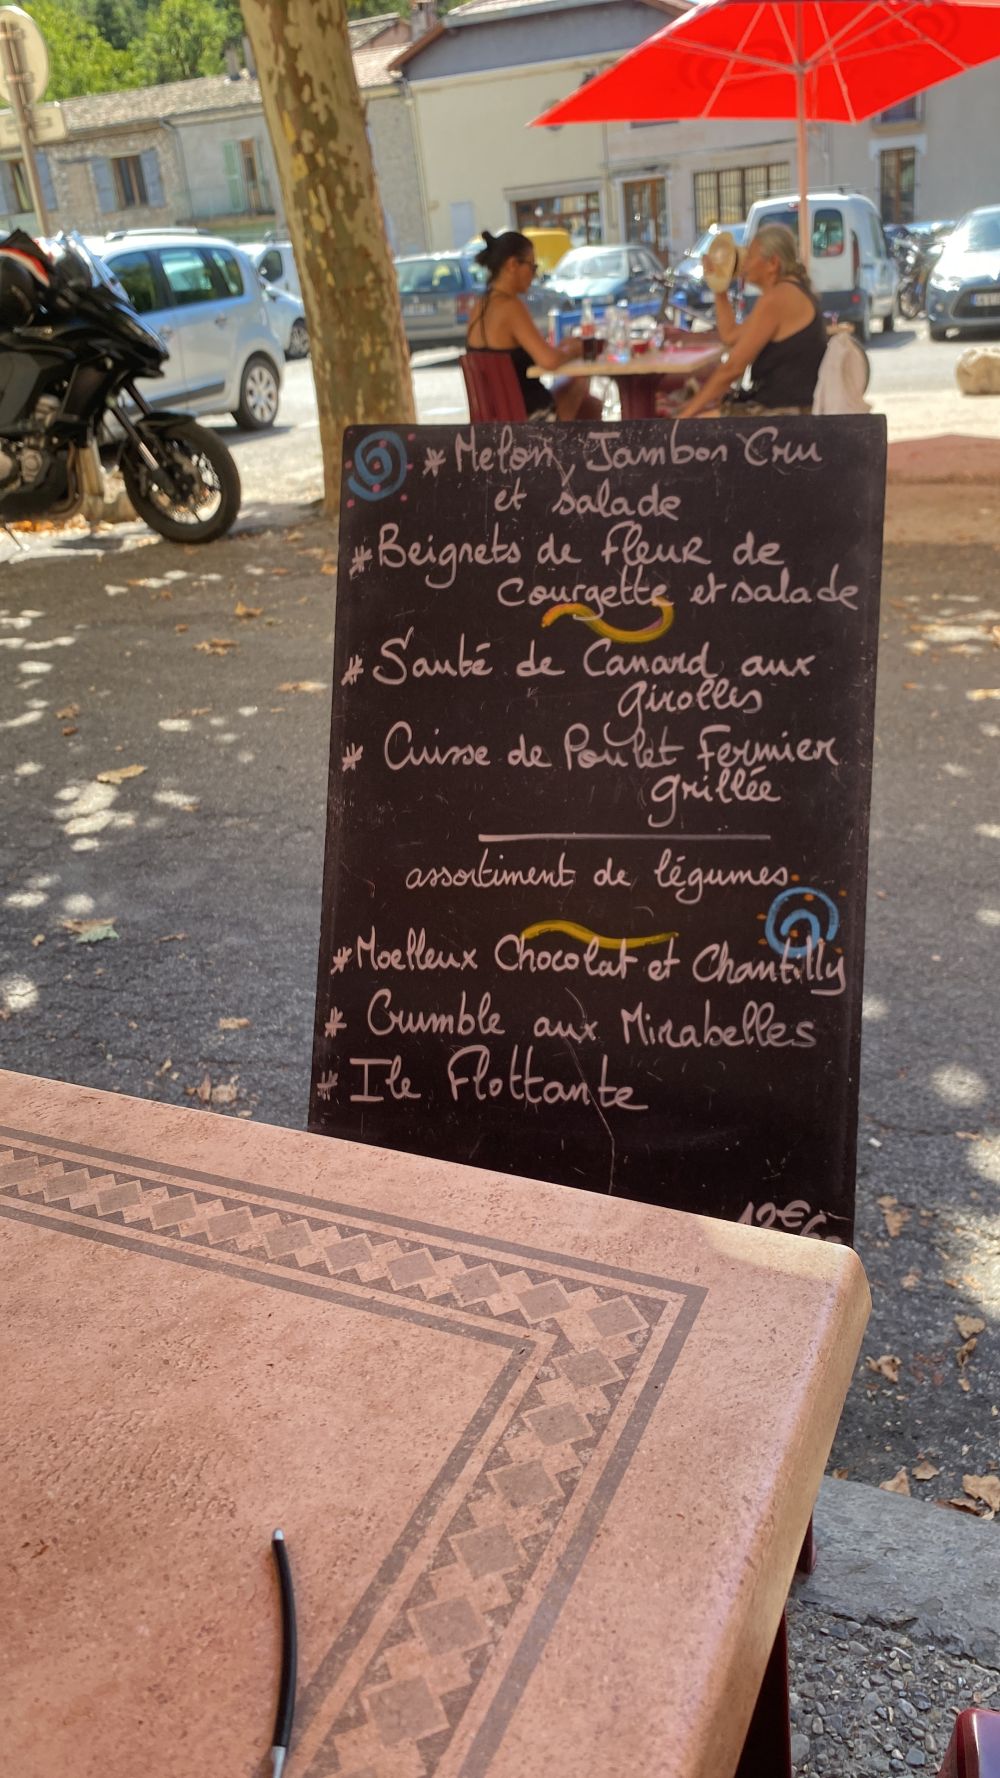 * Melon, Jambon Cru
et salade
* Beignets de fleur de
Courgette et salade
* Sauté de Canard aux
girolles
* Cuisse de Poulet Fermier
grillée
assortiment de légumes
* Moelleux Chocolat et Chantilly
* Crumble aux Mirabelles
* Ile Flottante